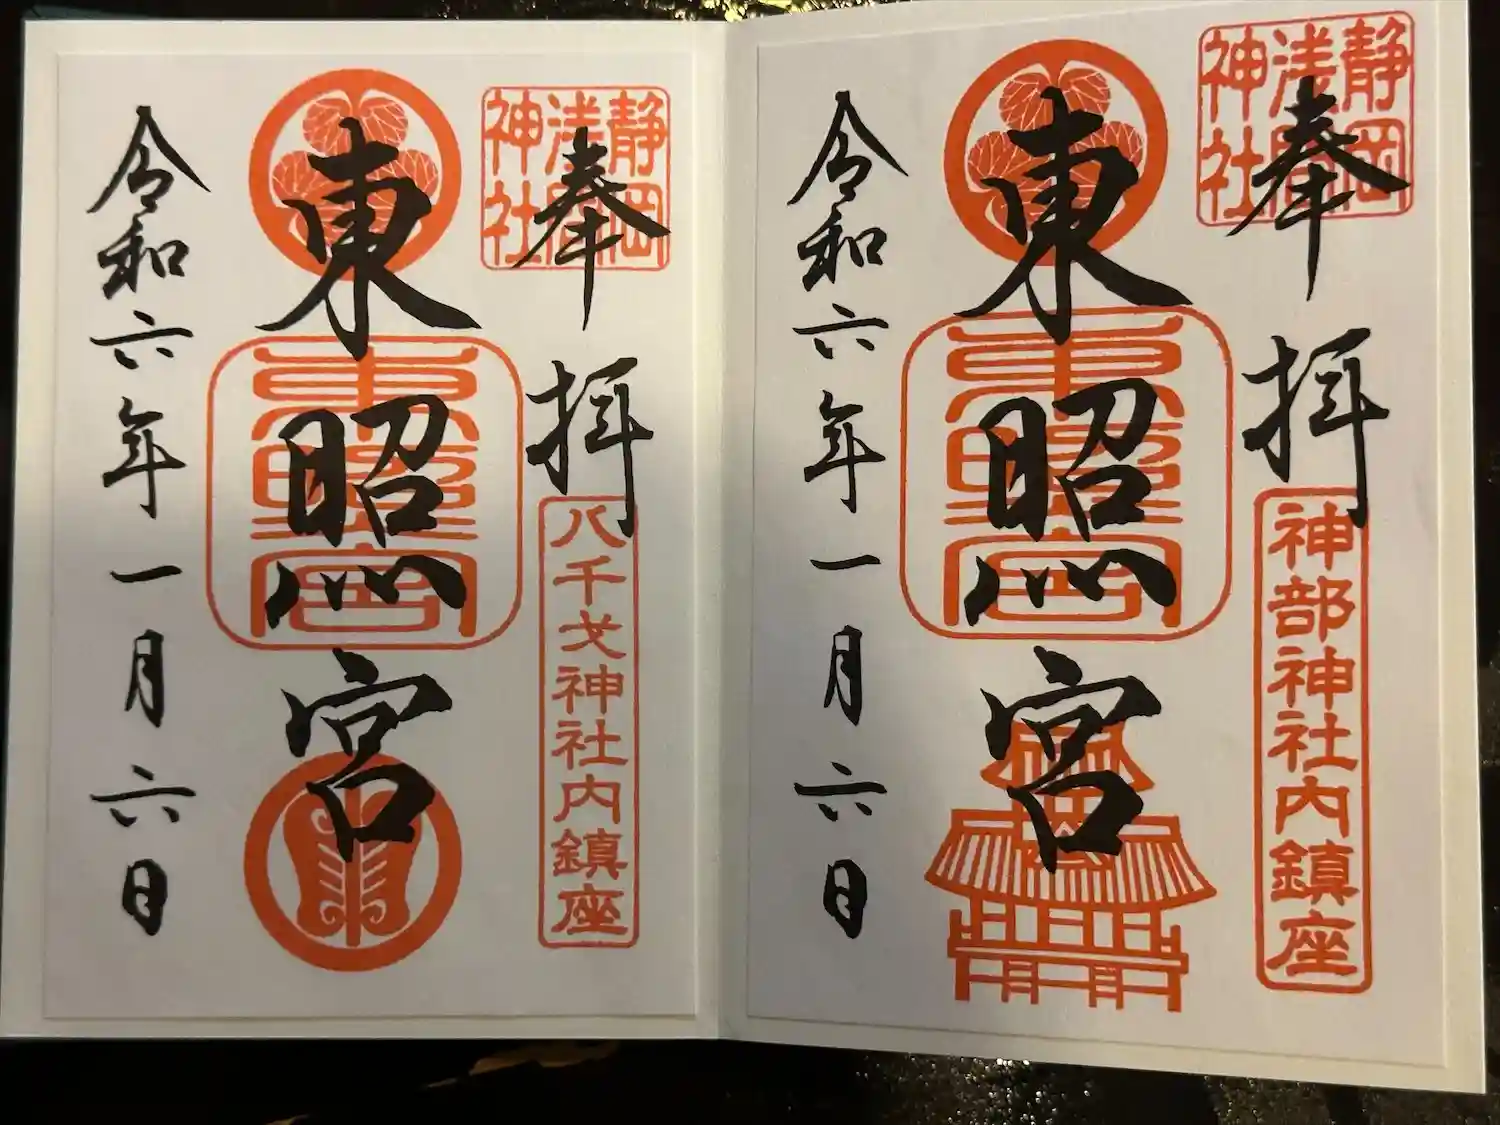 静岡
浅間
神社
奉拝
神部神社内鎮座
東照宮
東照宮
令和六年一月六日
静岡
浅間
神社
奉拝
八千戈神社内鎮座
東照宮
東照宮
令和六年一月六日